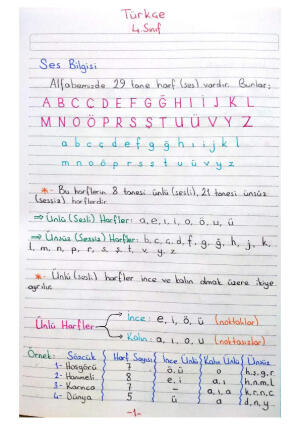 Türkçe
4. Sınıf
Ses Bilgisi
Alfabemizde 29 tane harf (ses) vardır. Bunlar;
A B C Ç D E F G Ğ H I İ J K L
M N O Ö P R S Ş T U Ü V Y Z
a b c ç d e f g ğ h ı i j k l
m n o ö p r s ş t u ü v y z
* - Bu harflerin 8 tanesi ünlü (sesli), 21 tanesi ünsüz
(sessiz) harflerdir.
⇒ Ünlü (Sesli) Harfler: a, e, ı, i, o, ö, u, ü
⇒ Ünsüz (Sessiz) Harfler: b, c, ç, d, f, g, ğ, h, j, k,
l, m, n, p, r, s, ş, t, v, y, z
* - Ünlü (sesli) harfler ince ve kalın olmak üzere ikiye
ayrılır.
İnce: e, i, ö, ü (noktalılar)
Ünlü Harfler
Kalın: a, ı, o, u (noktasızlar)
Örnek: Sözcük Harf Sayısı İnce Ünlü Kalın Ünlü Ünsüz
1- Hoşgörü 7 ö, ü o h, ş, g, r
2- Hanımeli 8 e, i a, ı h, n, m, l
3- Karınca 7 - a, ı, a k, r, n, c
4- Dünya 5 ü a d, n, y
-1-